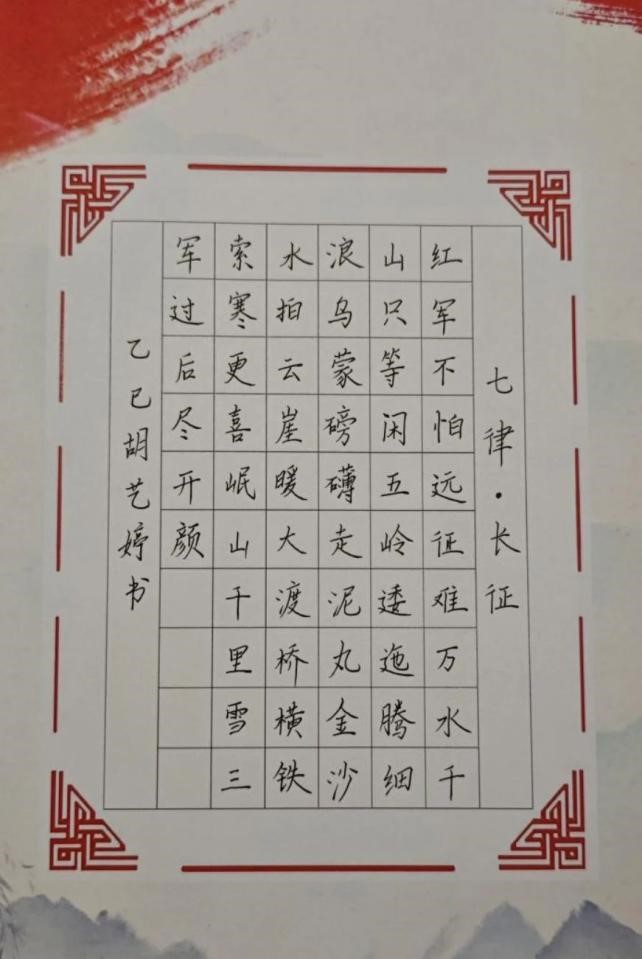 七律·长征
红军不怕远征难万水千
山只等闲五岭逶迤腾细
浪乌蒙磅礴走泥丸金沙
水拍云崖暖大渡桥横铁
索寒更喜岷山千里雪三
军过后尽开颜
乙巳胡艺婷书